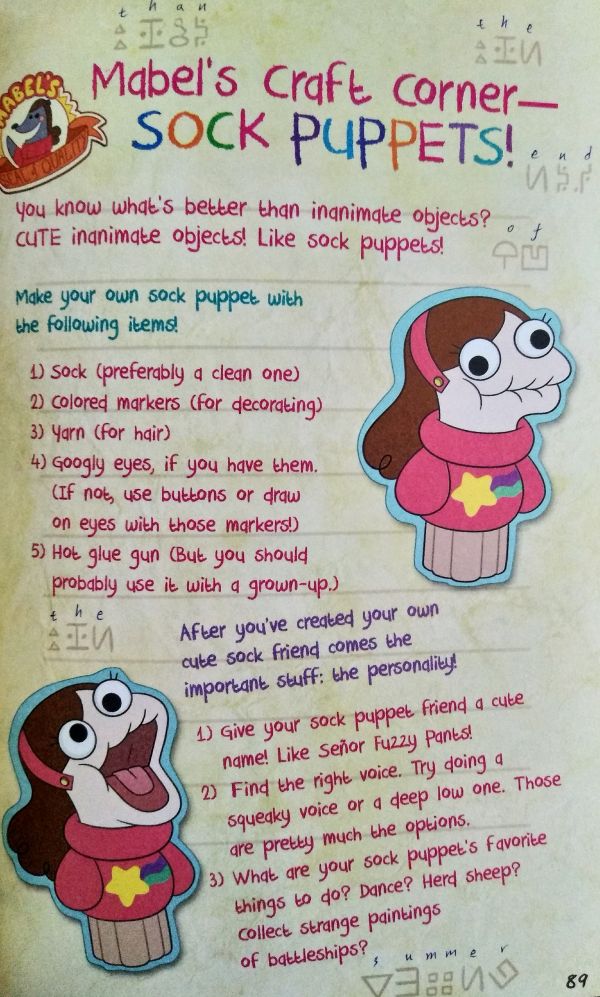 t h a n
t h e
MABEL'S
SEAL of QUALITY
Mabel's Craft Corner—
SOCK PUPPETS!
e n d
You know what's better than inanimate objects?
CUTE inanimate objects! Like sock puppets!
o f
Make your own sock puppet with
the following items!
1) Sock (preferably a clean one)
2) Colored markers (for decorating)
3) Yarn (for hair)
4) Googly eyes, if you have them.
(If not, use buttons or draw
on eyes with those markers!)
5) Hot glue gun (But you should
probably use it with a grown-up.)
t h e
After you've created your own
cute sock friend comes the
important stuff: the personality!
1) Give your sock puppet friend a cute
name! Like Señor Fuzzy Pants!
2) Find the right voice. Try doing a
squeaky voice or a deep low one. Those
are pretty much the options.
3) What are your sock puppet's favorite
things to do? Dance? Herd sheep?
Collect strange paintings
of battleships?
s u m m e r
89